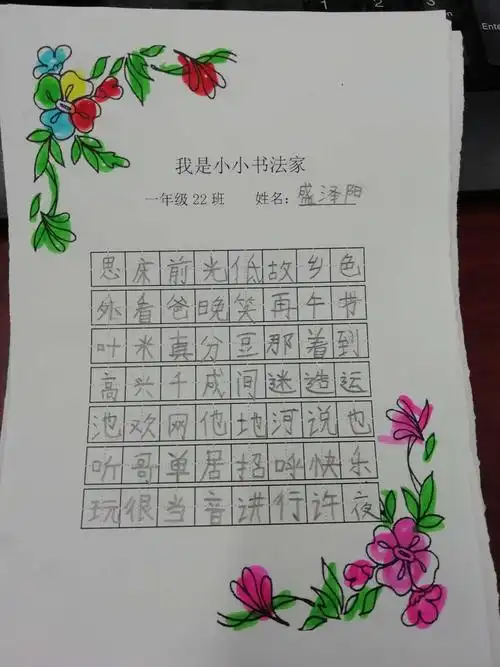 我是小小书法家
一年级22班 姓名：盛泽阳
思床前光低故乡色
外看爸晚笑再午节
叶米真分豆那着到
高兴千成间迷造运
池欢网他地河说也
听哥单居招呼快乐
玩很当音讲行许夜